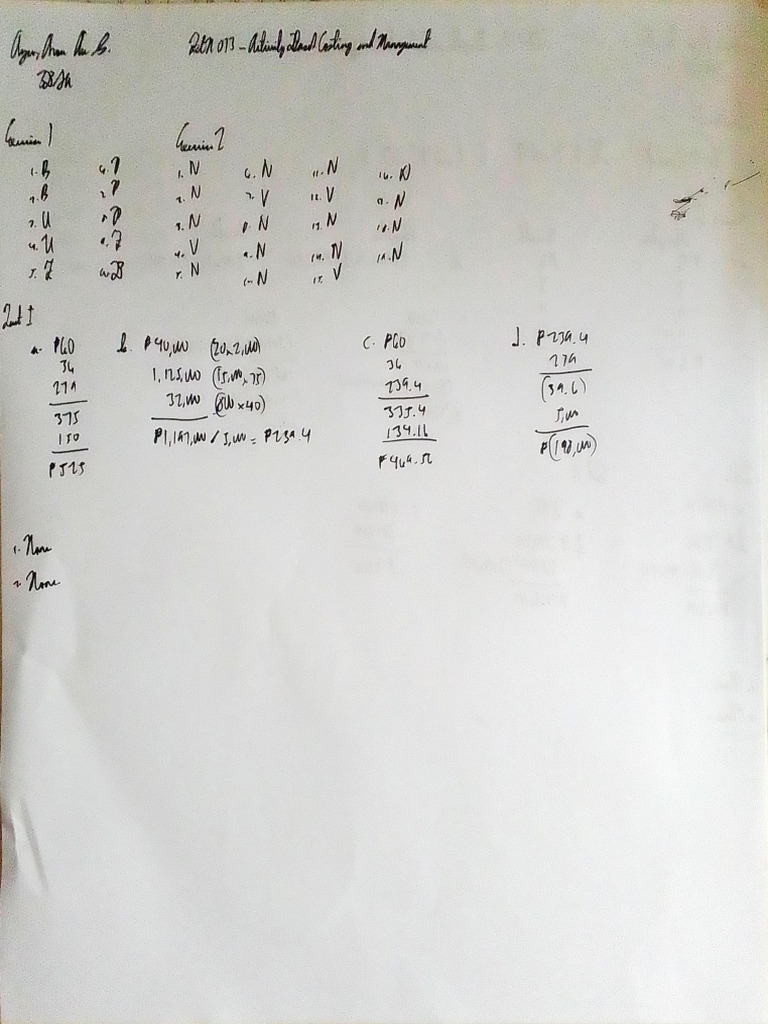 013 - Activity Based Costing and Management
Exercise 1 Exercise 2
1. B 6. P 1. N 6. N 11. N 16. N
2. B 7. P 2. N 7. V 12. V 17. N
3. U 8. P 3. N 8. N 13. N 18. N
4. U 9. F 4. V 9. N 14. N 19. N
5. F 10. B 5. N 10. N 15. V
Test I
a. P60 b. P40,000 (20 x 2,000) c. P60 d. P239.4
36 1,125,000 (15,000 x 75) 36 279
279 32,000 (800 x 40) 239.4 (39.6)
375 P1,197,000 / 5,000 = P239.4 335.4 5,000
150 134.16 P(198,000)
P525 P469.56
1. None
2. None